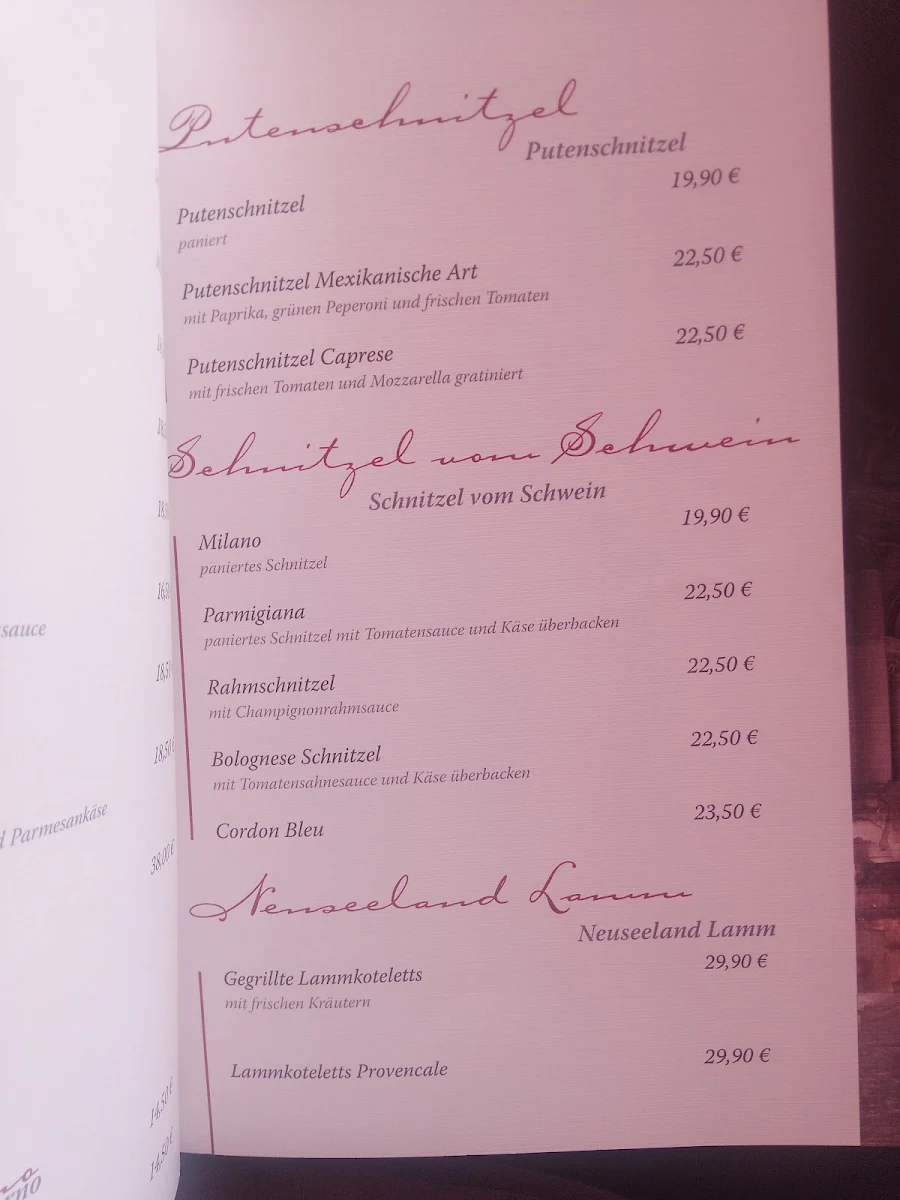 Putenschnitzel
Putenschnitzel
Putenschnitzel 19,90 €
paniert
Putenschnitzel Mexikanische Art 22,50 €
mit Paprika, grünen Peperoni und frischen Tomaten
Putenschnitzel Caprese 22,50 €
mit frischen Tomaten und Mozzarella gratiniert
Schnitzel vom Schwein
Schnitzel vom Schwein
Milano 19,90 €
paniertes Schnitzel
Parmigiana 22,50 €
paniertes Schnitzel mit Tomatensauce und Käse überbacken
Rahmschnitzel 22,50 €
mit Champignonrahmsauce
Bolognese Schnitzel 22,50 €
mit Tomatensahnesauce und Käse überbacken
Cordon Bleu 23,50 €
Neuseeland Lamm
Neuseeland Lamm
Gegrillte Lammkoteletts 29,90 €
mit frischen Kräutern
Lammkoteletts Provencale 29,90 €
sauce
18,50
Parmesankäse
38,00 €
14,50 €
14,50 €